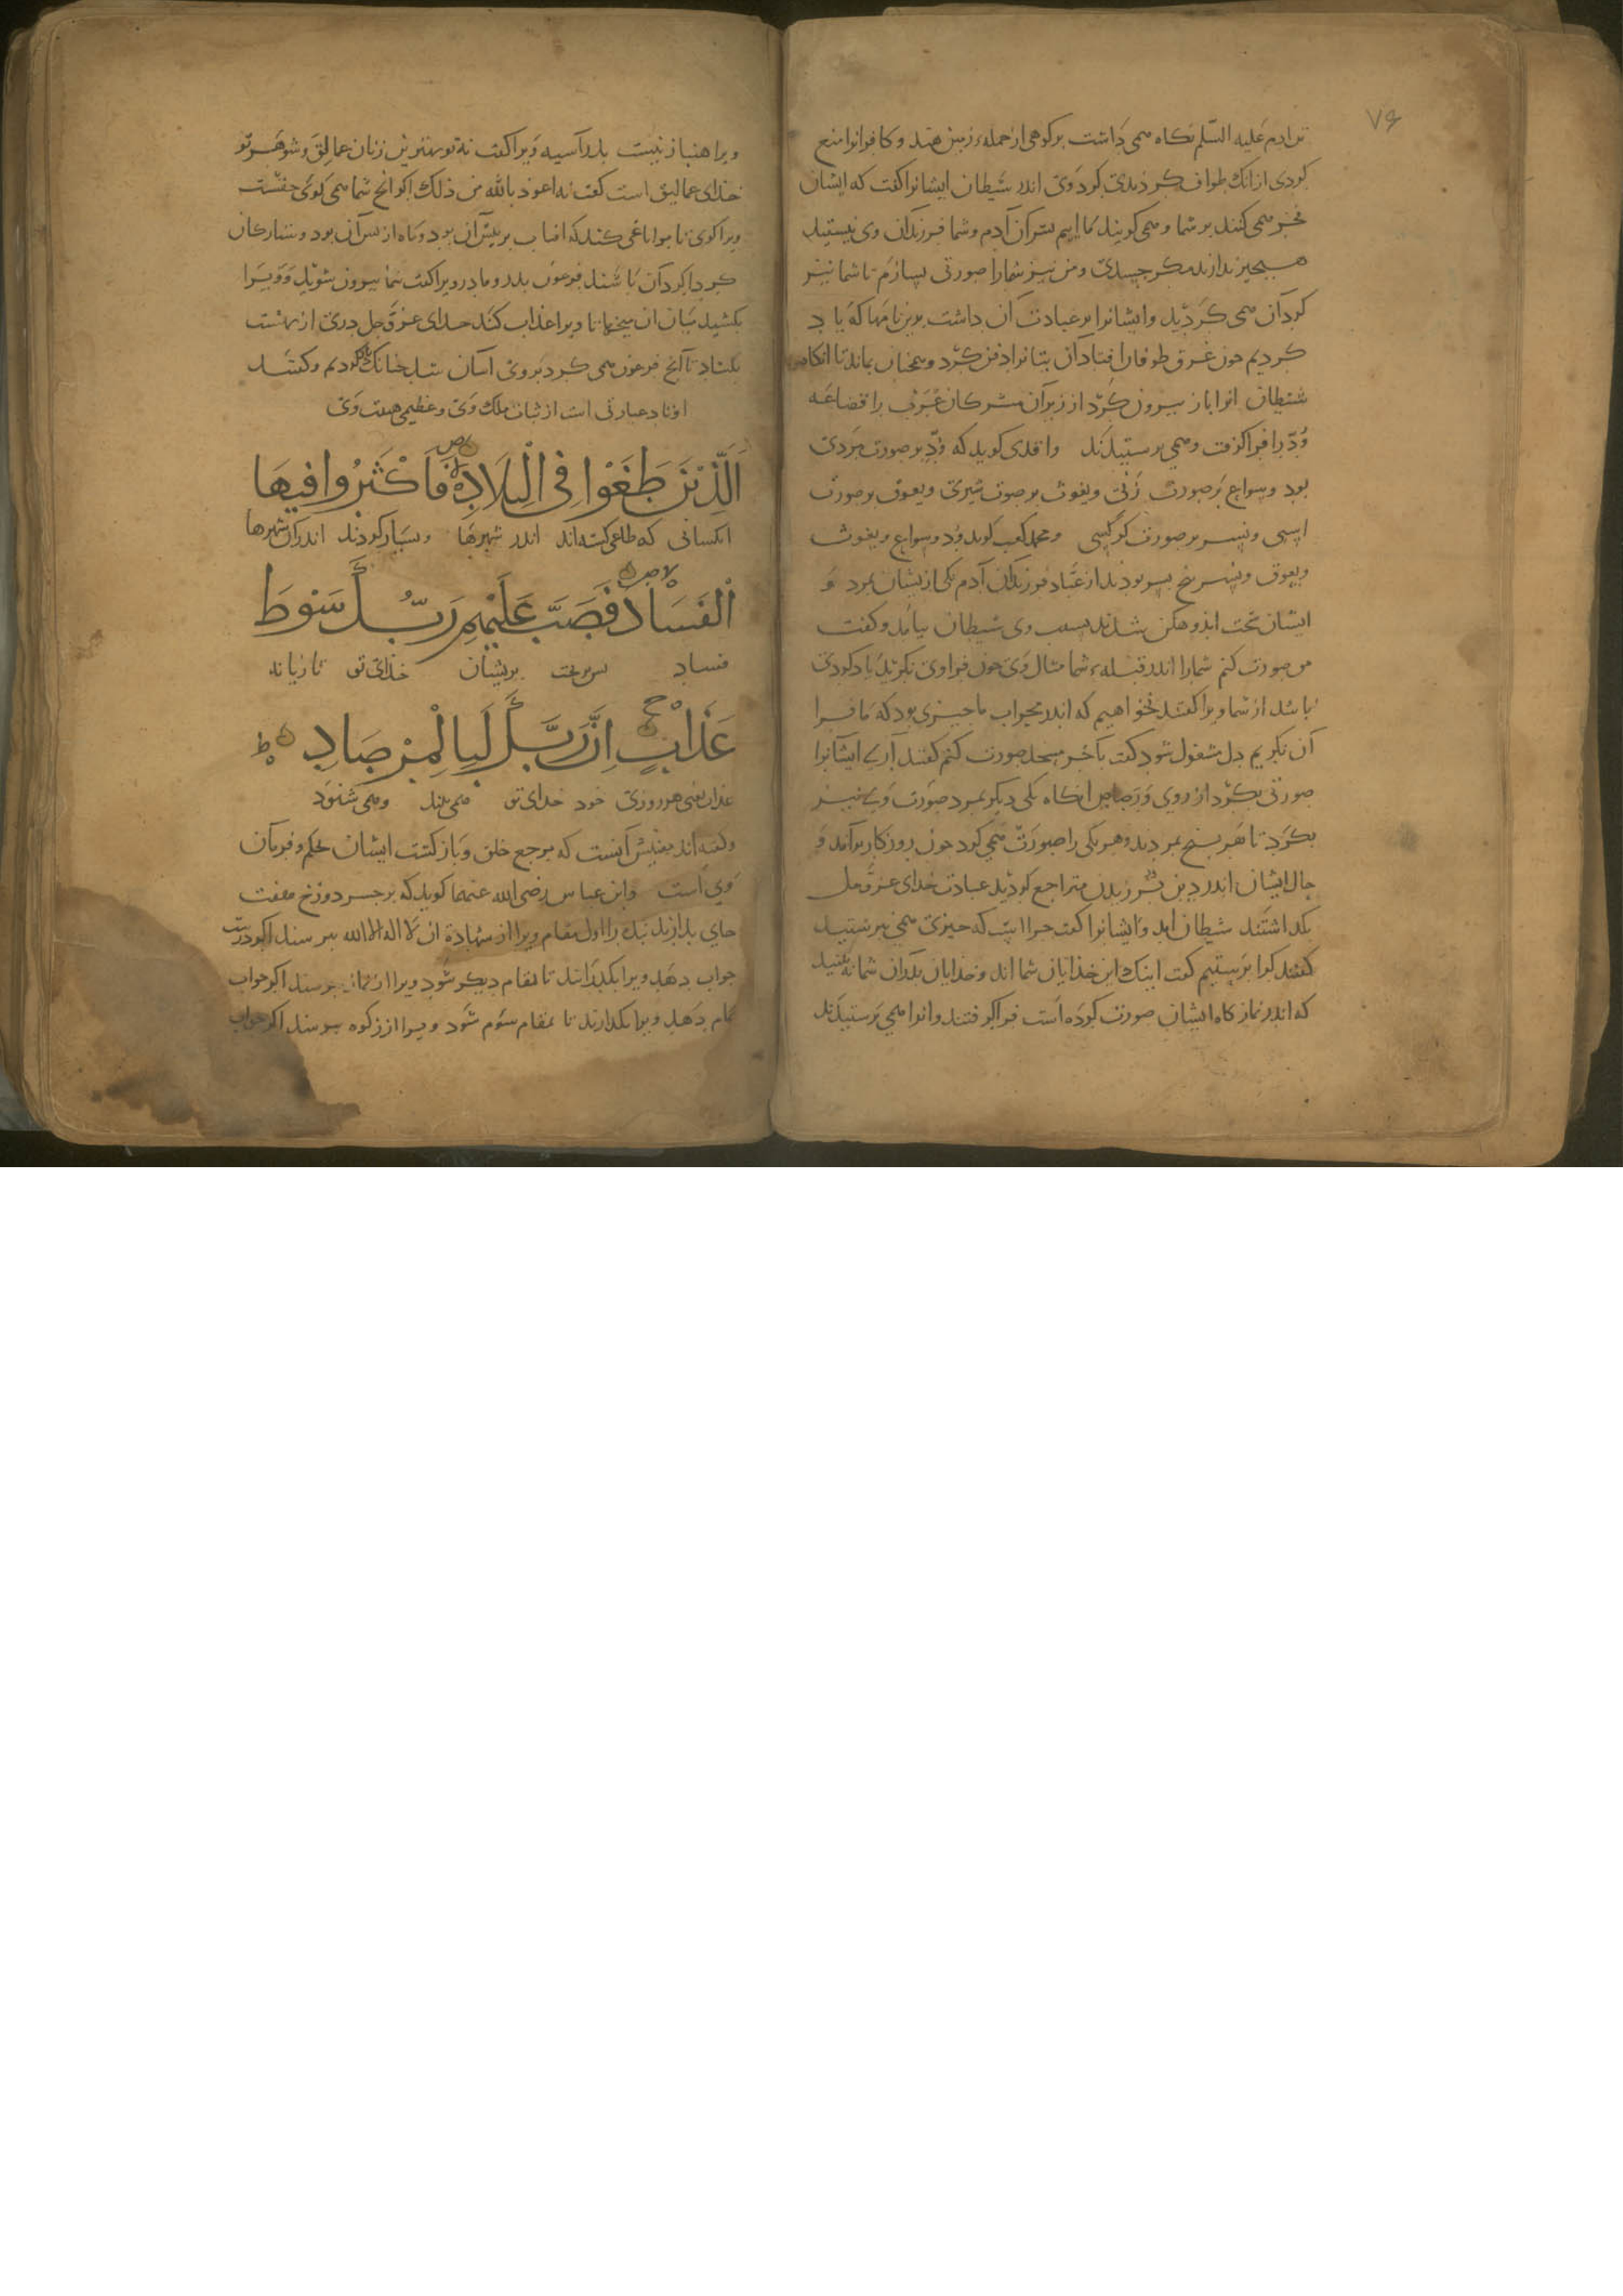 ۷۶
تن ادم علیه السّلم نکاه می داشت بر کوهی از جمله زمین هند و کافرانرا منع
کردی از انک طواف کردندی بکرد وی اندر شیطان ایشانرا کفت که ایشان
فخر می کنند بر شما و می کویند که ما ایم پسران آدم و شما فرزندان وی نیستید
من نیز شمارا صورتی بسازم تا شما نیز
کرد آن می کردید و ایشانرا بر عبادت آن داشت بدین نامها که یاد
کردیم جون غرق طوفان افتاد آن بتانرا دفن کرد و همچنان بماند تا انکاه
شیطان انرا باز بیرون کرد از زیر آن مشرکان عرب را قضاعه
وُدّ را فرا کرفت و می برستیدند واقدی کوید که وُدّ بر صورت مردی
بود و سواع بر صورت زنی و یغوث بر صورت شیری و یعوق بر صورت
اسبی و نسر بر صورت کرکسی و محمد کعب کوید وُد و سواع و یغوث
و یعوق و نسر پنج پسر بودند از عُبّاد فرزندان آدم یکی ازیشان بمرد و
ایشان سخت اندوهکن شدند بسبب وی شیطان بیامد و کفت
من صورت کنم شمارا اندر قبله شما مثال وی جون فرا وی نکرید یاد کردی
باشد از شما ویرا کفتند نخواهیم که اندر محراب ما جیزی بود که ما فرا
آن نکریم دل مشغول شود کفت بآخر مسجد صورت کنم کفتند آری ایشانرا
صورتی بکرد از روی و رصاص انکاه یکی دیکر بمرد صورت وی نیز
بکرد تا هر پنج بمردند و هر یکی را صورت می کرد جون روزکار برآمد و
حال ایشان اندر دین متراجع کردید عبادت خدای عزّ و جل
بکداشتند شیطان امد و ایشانرا کفت جرا است که جیزی می نبرستید
کفتند کرا برستیم کفت اینک این خذایان شما اند و خذایان بدران شما نه بینید
که اندر نمازکاه ایشان صورت کرده است فرا کرفتند و انرا می برستیدند
ویرا هنباز نیست بدر آسیه ویرا کفت نه تو بهترین زنان عمالیق و شوهر تو
خدای عمالیق است کفت نه اعوذ بالله من ذلک اکر انج شما می کوئی حقست
ویرا کوی تا مرا تاجی کند که افتاب بر پیش آن بود و ماه از پس آن بود و ستارکان
کرد اکرد آن باشند فرعون بدر و مادر ویرا کفت شما بیرون شوید و ویرا
بکشید میان ان میخها تا ویرا عذاب کند خدای عزّ و جل دری از بهشت
بکشاد تا آنج فرعون می کرد بر وی آسان شد جنانک یاد کردیم و کفتند
اوتاد عبارتی است از ثبات ملک وی و عظیمی هیبت وی
اَلَّذِیْنَ طَغَوْا فِی الْبِلَادِ فَاَکْثَرُوا فِیهَا
انکسانی که طاغی کشته اند اندر شهرها و بسیار کردند اندر آن شهرها
الْفَسَادَ فَصَبَّ عَلَیْهِمْ رَبُّكَ سَوْطَ
فساد بس بریخت بریشان خذای تو تازیانه
عَذَابٍ اِنَّ رَبَّكَ لَبِالْمِرْصَادِ
عذاب یعنی هر روزی خود خدای تو می بیند و می شنود
و کفته اند معنیش آنست که مرجع خلق و باز کشت ایشان بحکم و فرمان
وی است و ابن عباس رضی الله عنهما کوید که بر جسر دوزخ هفت
جای بدارند بنده را اول مقام ویرا از شهادة ان لا اله الا الله ببرسند اکر درست
جواب دهد ویرا بکذارند تا بمقام دیکر شود ویرا از نماز ببرسند اکر جواب
تمام دهد ویرا بکدارند تا بمقام سوم شود ویرا از زکوه ببرسند اکر جواب